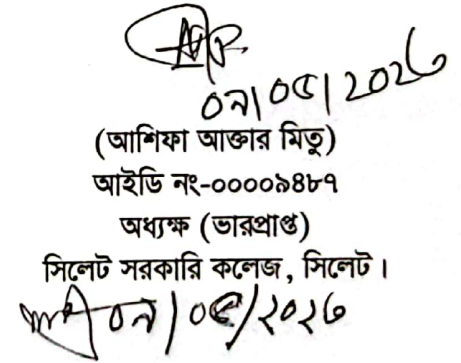 ০৭|০৫|২০২৬
(আশিফা আক্তার মিতু)
আইডি নং-০০০০৯৪৮৭
অধ্যক্ষ (ভারপ্রাপ্ত)
সিলেট সরকারি কলেজ, সিলেট।
০৭|০৫/২০২৬